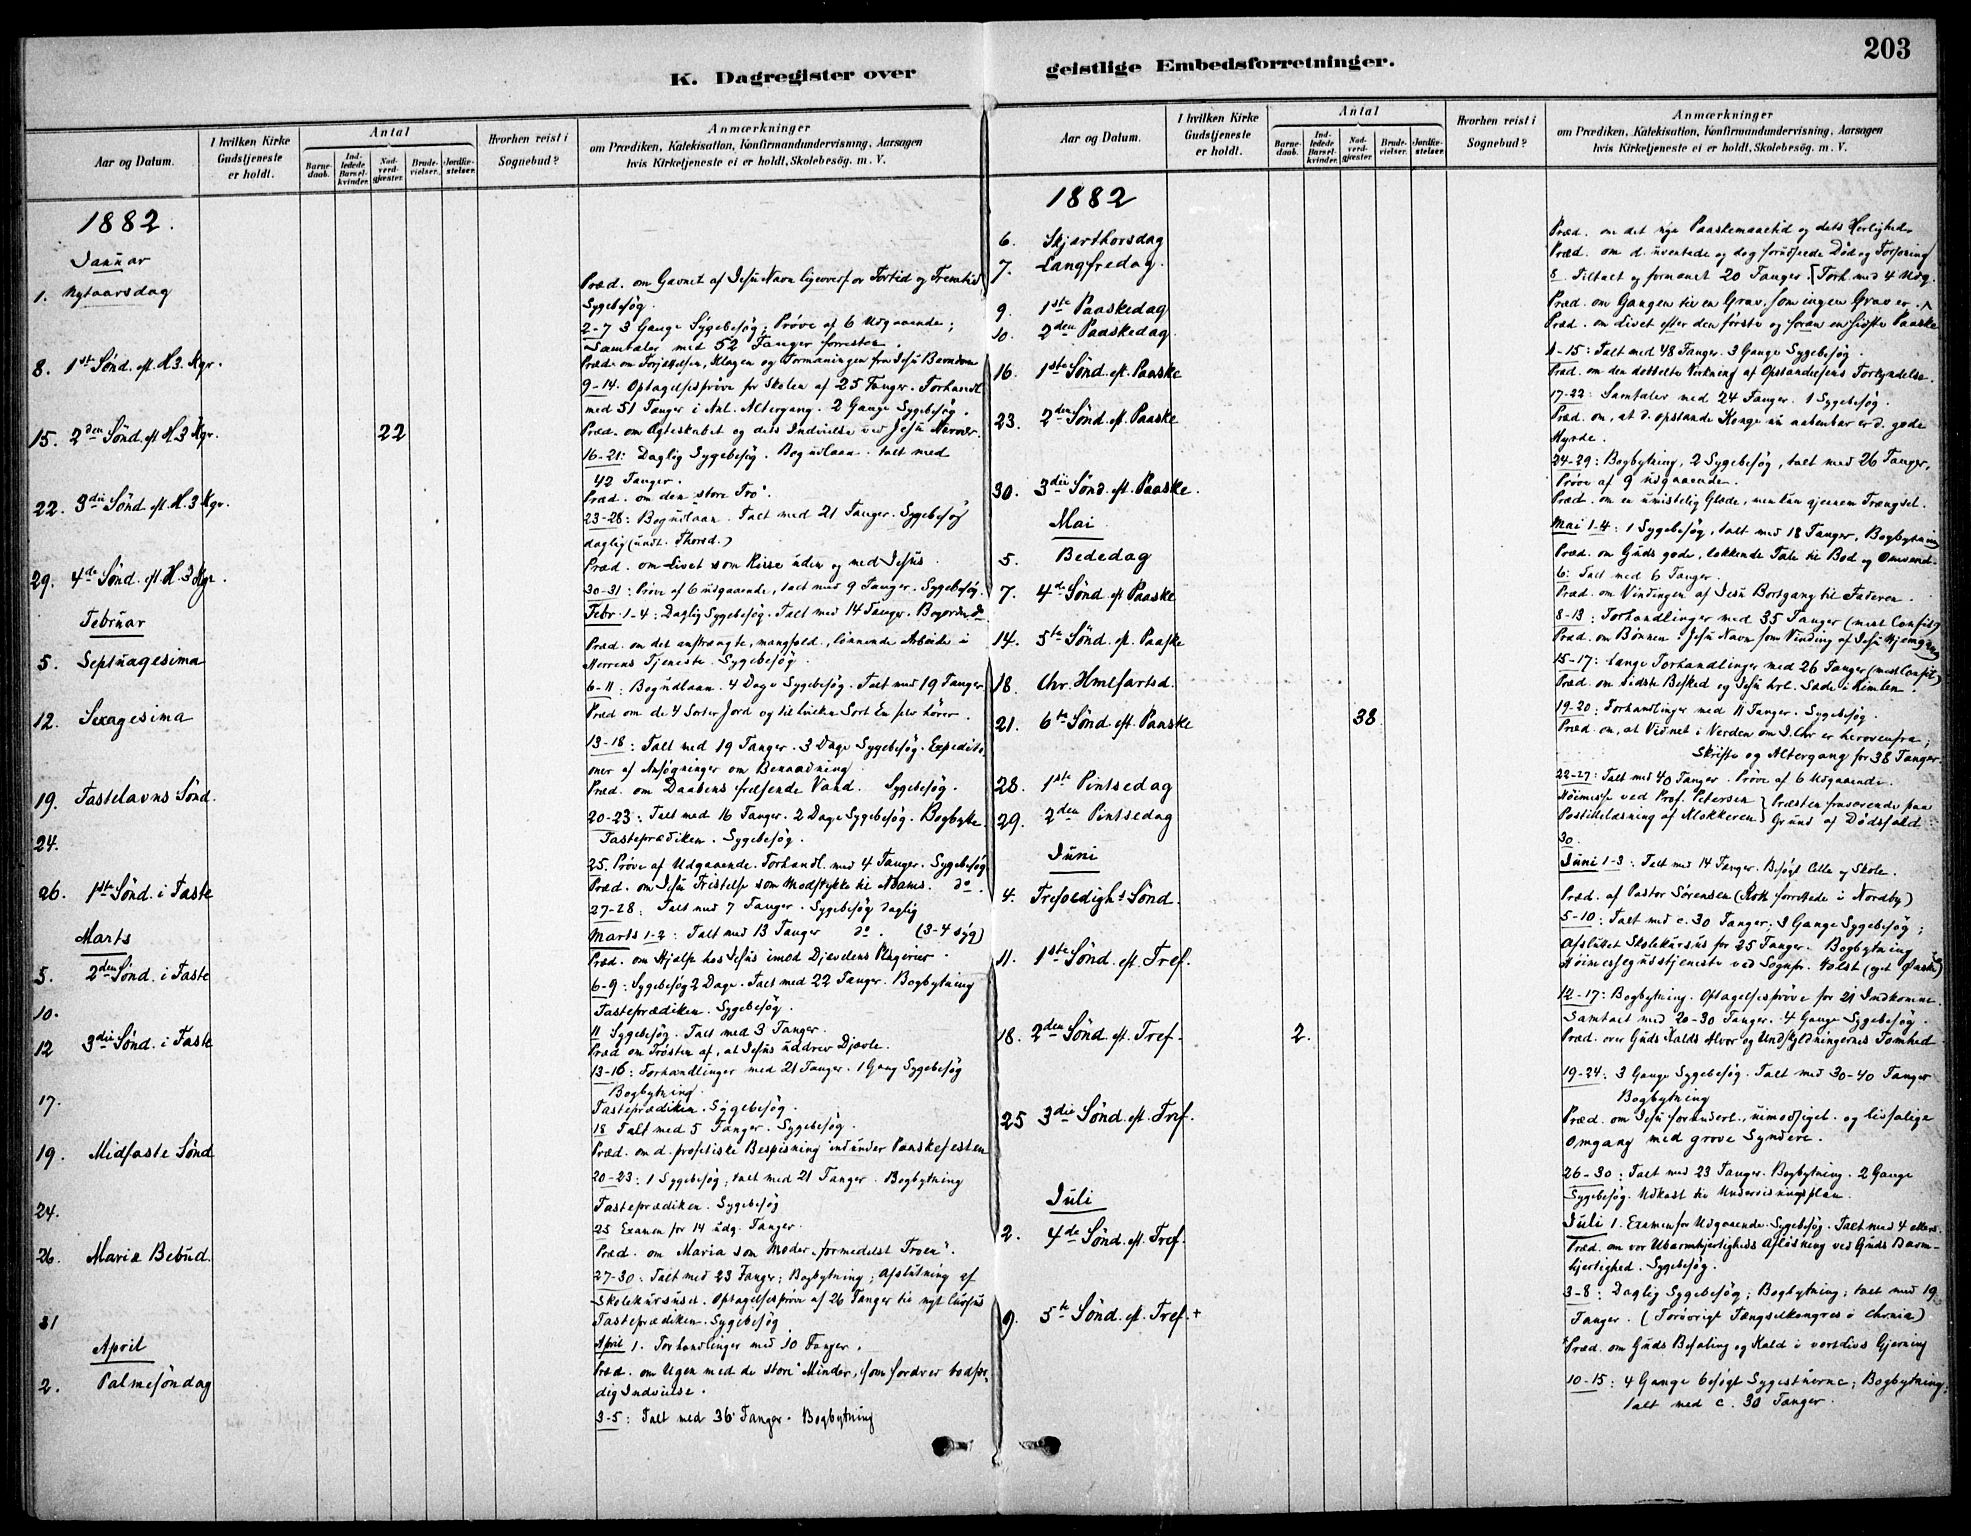 203
K. Dagregister over geistlige Embedsforretninger.
Aar og Datum.
I hvilken Kirke Gudstjeneste er holdt.
Antal
Barnedaab.
Indledede Barselkvinder.
Nadverdgjæster.
Brudevielser.
Jordfæstelser.
Hvorhen reist i Sognebud?
Anmærkninger
om Prædiken, Katekisation, Konfirmandundervisning, Aarsagen
hvis Kirketjeneste ei er holdt, Skolebesøg. m. V.
1882.
Januar
1. Nytaarsdag
Præd. om Gavnet af Jesu Navn ligeoverfor Fortid og Fremtid
Sygebesøg.
2-7 3 Gange Sygebesøg; Prøve af 6 Udgaaende;
Samtaler med 52 Fanger forresten.
8. 1ste Sønd. eft. H. 3 Kgr.
Præd. om Forjættelsen, Klagen og Formaningen fra Jesu Barndom
9-14. Optagelsesprøve for Skolen af 25 Fanger. Forhandl.
med 51 Fanger i Anl. Altergang. 2 Gange Sygebesøg.
15. 2den Sønd. eft H. 3 Kgr. 22
Præd. om Ægteskabet og dets Indvielse ved Jesu Nærvær.
16-21: Daglig Sygebesøg. Bogudlaan. talt med
42 Fanger.
22. 3die Sønd eft H. 3 Kgr.
Præd. om den "store Tro".
23-28: Bogudlaan. Talt med 21 Fanger. Sygebesøg
daglig (undt. Thorsd.)
29. 4de Sønd. eft H. 3 Kgr.
Præd. om Livet som Reise uden og med Jesus
30-31: Prøve af 6 udgaaende, talt med 9 Fanger. Sygebesøg.
Februar
Febr. 1-4: Daglig Sygebesøg. Talt med 14 Fanger. Bogorden. do
5. Septuagesima
Præd. om det anstrengte, mangfold., lønnende Arbeide i
Herrens Tjeneste. Sygebesøg.
6-11: Bogudlaan. 4 Dage Sygebesøg. Talt med 19 Fanger
12. Sexagesima
Præd om de 4 Sorter Jord og til hvilken Sort En selv hører.
13-18: Talt med 19 Fanger. 3 Dage Sygebesøg. Expediti-
oner af Ansøgninger om Benaadning.
19. Fastelavns Sønd.
Præd. om Daabens frelsende Vand. Sygebesøg.
20-23: Talt med 16 Fanger. 2 Dage Sygebesøg. Bogbytte
24.
Fasteprædiken. Sygebesøg.
25. Prøve af Udgaaende. Forhandl. med 4 Fanger. Sygebesøg
26. 1ste Sønd. i Faste
Præd. om Jesu Fristelse som Modstykke til Adams. do.
27-28: Talt med 7 Fanger. Sygebesøg daglig
Marts
Marts 1-2: Talt med 13 Fanger do. (3-4 syg)
5. 2den Sønd. i Faste
Præd. om Hjælp hos Jesus imod Djævelens Plagerier.
6-9: Sygebesøg 2 Dage. Talt med 22 Fanger. Bogbytning
10.
Fasteprædiken. Sygebesøg.
11 Sygebesøg. Talt med 3 Fanger.
12 3die Sønd. i Faste
Præd om Trøsten af, at Jesus uddrev Djævle.
13-16: Forhandlinger med 21 Fanger. 1 Gang Sygebesøg
Bogbytning.
17.
Fasteprædiken. Sygebesøg.
18 Talt med 5 Fanger. Sygebesøg.
19. Midfaste Sønd
Præd. om d. profetiske Bespisning ind under Paaskefesten
20-23: 1 Sygebesøg; talt med 21 Fanger. Bogbytning
24.
Fasteprædiken. Sygebesøg
25 Examen for 14 udg. Fanger.
26. Mariæ Bebud.
Præd. om Maria som Moder "formedelst Troen".
27-30: Talt med 23 Fanger; Bogbytning; Afslutning af
Skolekursuset. Optagelsesprøve af 26 Fanger til nyt Cursus
31
Fasteprædiken. Sygebesøg
April
April 1. Forhandlinger med 10 Fanger.
2. Palmesøndag
Præd. om Ugen med de store Minder, som fordrer bodfær-
dig Indvielse.
3-5: Talt med 36 Fanger. Bogbytning
Aar og Datum.
I hvilken Kirke Gudstjeneste er holdt.
Antal
Barnedaab.
Indledede Barselkvinder.
Nadverdgjæster.
Brudevielser.
Jordfæstelser.
Hvorhen reist i Sognebud?
Anmærkninger
om Prædiken, Katekisation, Konfirmandundervisning, Aarsagen
hvis Kirketjeneste ei er holdt, Skolebesøg. m. V.
1882
6. Skjærthorsdag
Præd. om det nye Paaskemaaltid og dets Herlighed.
7. Langfredag.
Præd. om d. uventede og dog forudseede Død og Forsoning
8. Tiltalt og formanet 20 Fanger. [Forh. med 4 Udg.
9. 1ste Paaskedag
Præd. om Gangen til en Grav, som ingen Grav er.
10. 2den Paaskedag.
Præd. om Livet efter den første og foran en sidste Paaske
11-15: Talt med 48 Fanger. 3 Gange Sygebesøg.
16. 1ste Sønd. eft. Paaske
Præd. om den dobbelte Virkning af Opstandelsens Forkyndelse.
17-22: Samtaler med 24 Fanger. 1 Sygebesøg.
23. 2den Sønd. eft Paaske
Præd. om, at d. opstandne Konge nu aabenbar er d. gode
Hyrde.
24-29: Bogbytning, 2 Sygebesøg, talt med 26 Fanger,
Prøve af 9 udgaaende.
30. 3die Sønd. eft. Paaske.
Præd. om en umistelig Glæde, men kun gjennem Trængsel.
Mai
Mai 1-4: 1 Sygebesøg, talt med 18 Fanger, Bogbytning
5. Bededag
Præd. om Guds gode, lokkende Tale til Bod og Omvend-
6: Talt med 6 Fanger.
7. 4de Sønd. eft Paaske
Præd. om Vindingen af Jesu Bortgang til Faderen.
8-13: Forhandlinger med 35 Fanger (mest Confits)
14. 5te Sønd. eft. Paaske
Præd. om Bønnen i Jesu Navn som Vinding af Jesu Hjemgang
15-17: Lange Forhandlinger med 26 Fanger (mest Confit.)
18. Chr. Hmlfartsd.
Præd. om sidste Besked og Jesu hrl. Sæde i Himlen.
19-20: Forhandlinger med 11 Fanger. Sygebesøg
21. 6te Sønd. eft. Paaske 38
Præd. om, at Vidnet i Verden om J. Chr er herovenfra;
Skrifte og Altergang for 38 Fanger.
22-27: Talt med 40 Fanger. Prøve af 6 Udgaaende.
28. 1ste Pintsedag
Høimesse ved Prof. Petersen } Præsten fraværende paa
29. 2den Pintsedag
Postillelæsning af Klokkeren } Grund af Dødsfald
30.
Juni
Juni 1-3: Talt med 14 Fanger. Besøgt Celle og Skole.
4. Trefoldighs Sønd.
Præd. af Pastor Sørensen (Roth forrettede i Nordby)
5-10: Talt med c. 30 Fanger; 3 Gange Sygebesøg;
Afsluttet Skolekursus for 25 Fanger. Bogbytning
11. 1ste Sønd. eft. Tref.
Høimessegudstjeneste ved Sognpr. Holst (eget Ønske)
12-17: Bogbytning. Optagelsesprøve for 21 Indkomne.
Samtalt med 20-30 Fanger. 4 Gange Sygebesøg.
18. 2den Sønd. eft Tref. 2.
Præd. over Guds Kalds Alvor og Undskyldningernes Tomhed
19-24: 3 Gange Sygebesøg. Talt med 30-40 Fanger
Bogbytning
25 3die Sønd. eft. Tref.
Præd. om Jesu forunderl., uimodsiget. og livsalige
Omgang med grove Syndere.
26-30: Talt med 23 Fanger. Bogbytning. 2 Gange
Sygebesøg. Udkast til Undervisningsplan.
Juli
Juli 1. Examen for Udgaaende. Sygebesøg. Talt med 4 ellers.
2. 4de Sønd. eft. Tref.
Præd. om vor Ubarmhjertigheds Afløsning ved Guds Barm-
hjertighed. Sygebesøg.
3-8: Daglig Sygebesøg; Bogbytning; talt med 19
Fanger. (Forøvrigt Fængselkongres i Chrnia)
9. 5te Sønd. eft. Tref. +
+Præd. om Guds Befaling og Kald i vort Livs Gjerning
10-15: 4 Gange besøgt Sygestuerne; Bogbytning;
talt med c. 30 Fanger.